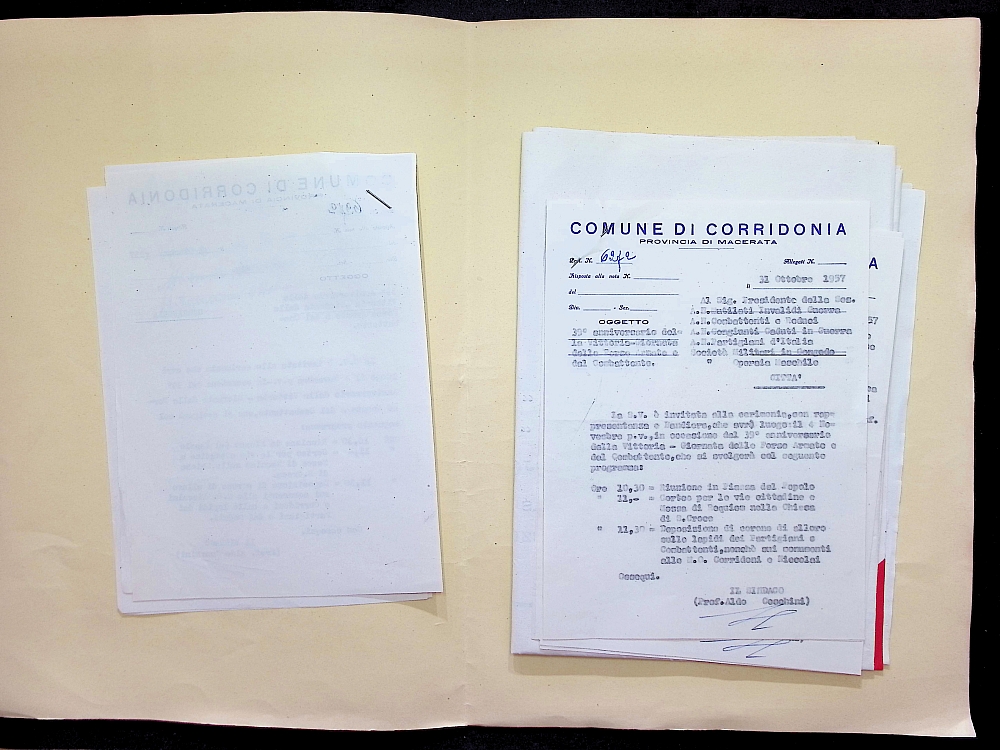 COMUNE DI CORRIDONIA
PROVINCIA DI MACERATA
Prot. N. 6272 Allegati N.
Risposta alla nota N. li 31 Ottobre 1957
del
Div. - Sez.
OGGETTO
39° anniversario del-
la Vittoria-Giornata
delle Forze Armate e
del Combattente.
Al Sig. Presidente della Sez.
A.N.Mutilati Invalidi Guerra
A.N.Combattenti e Reduci
A.N.Congiunti Caduti in Guerra
A.N.Partigiani d'Italia
Società Militari in Congedo
" Operaia Maschile
CITTA'
La S.V. è invitata alla cerimonia,con rap-
presentanza e Bandiera,che avrà luogo il 4 No-
vembre p.v.,in occasione del 39° anniversario
della Vittoria - Giornata delle Forze Armate e
del Combattente,che si svolgerà col seguente
programma:
Ore 10,30 = Riunione in Piazza del Popolo
" 11,- = Corteo per le vie cittadine e
Messa di Requiem nella Chiesa
di S.Croce
" 11,30 = Deposizione di corone di alloro
sulle lapidi dei Partigiani e
Combattenti,nonchè sui monumenti
alle M.O. Corridoni e Niccolai
Ossequi.
IL SINDACO
(Prof.Aldo Cecchini)
A
57
COMUNE DI CORRIDONIA